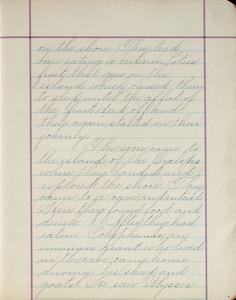 on the shore. They had
been eating a certain Lotus
fruit that grew on the
island which caused them
to sleep until the affect of
the fruit died out and
they again started on their
journey.
They soon came to
the island of the Cyclops
where they landed and
explored the shore. They
came to a cave and entered
Here they found food and
drink. After they had
eaten Polyphemus, an
immense giant who lived
in the cave came home
driving his sheep and
goats. He saw Ulysses